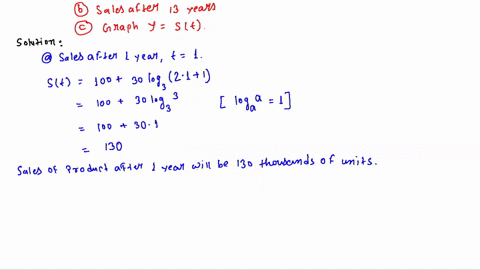 (b) Sales after 13 years
(c) Graph Y = S(t).
Solution:
(a) Sales after 1 year, t = 1.
S(t) = 100 + 30 log₃ (2·1+1)
= 100 + 30 log₃ 3 [ logₐ a = 1 ]
= 100 + 30·1
= 130
Sales of Product after 1 year will be 130 thousands of units.